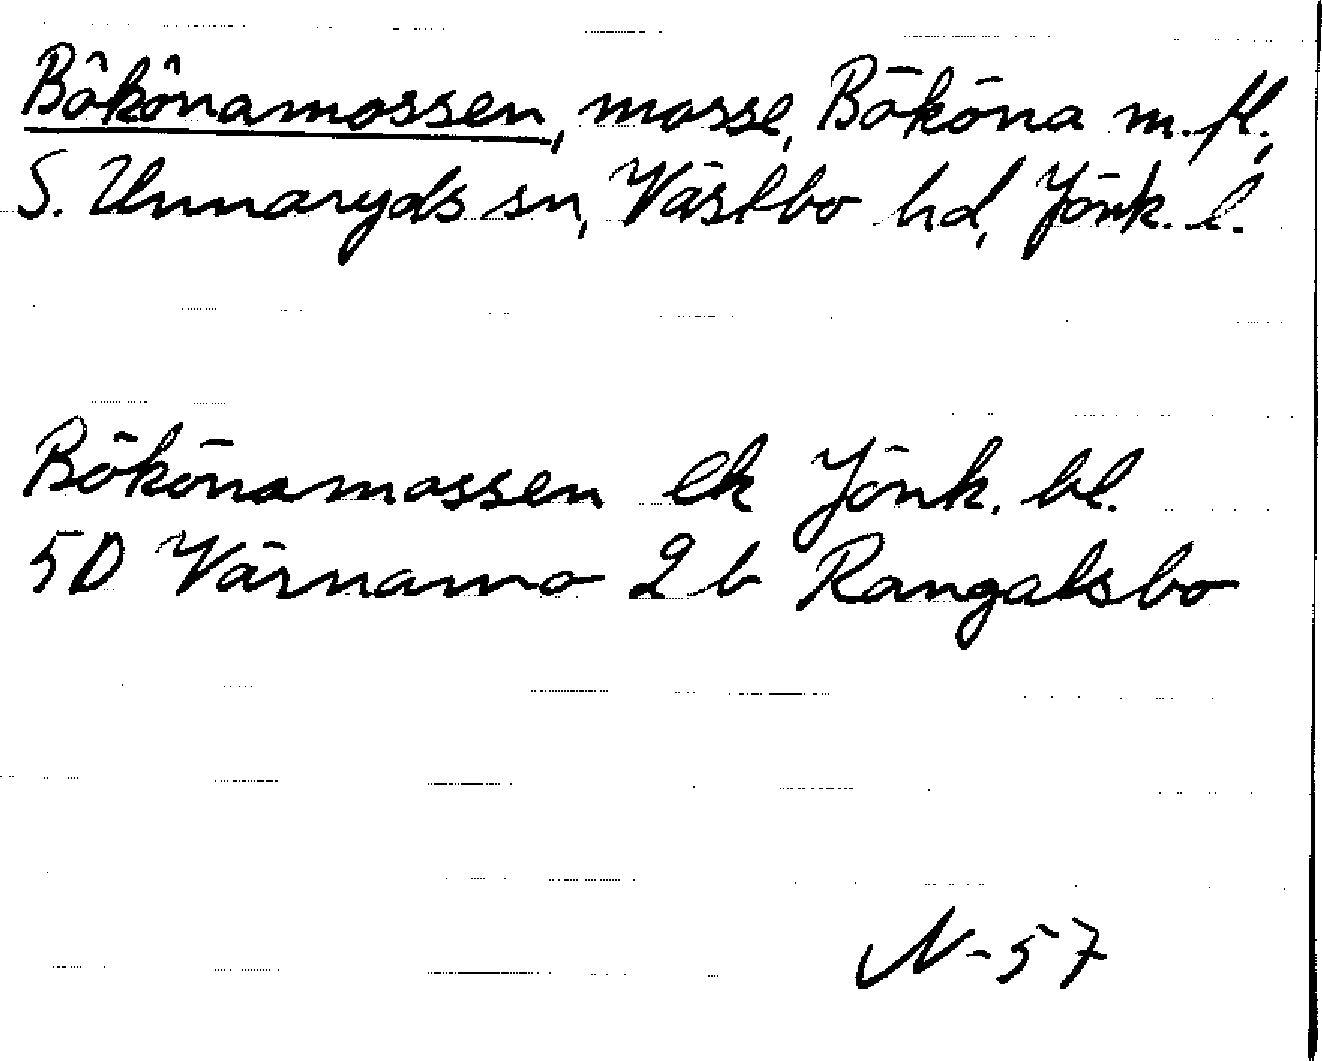 Bökönamossen, mosse, Bököna m. fl.,
S. Unnaryds sn, Västbo hd, Jönk. l.
Bökönamossen ek Jönk. bl.
5D Värnamo 2 b Rangalsbo
N-57